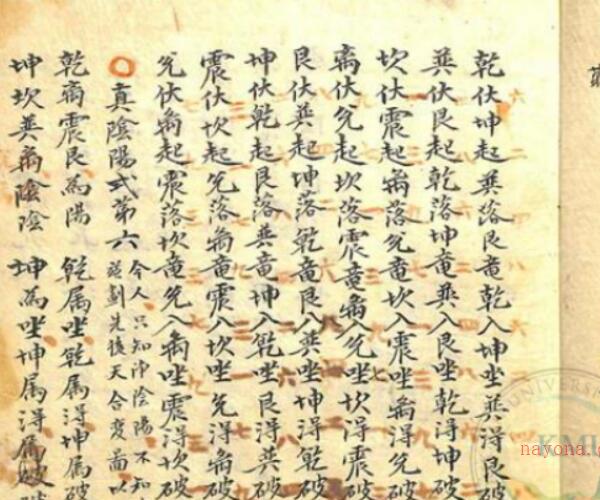 乾伏坤起巽落艮竜乾入坤坐巽得艮破
巽伏艮起乾落坤竜巽入艮坐乾得坤破
坎伏震起离落兌竜坎入震坐离得兌破
离伏兌起坎落震竜离入兌坐坎得震破
艮伏巽起坤落乾竜艮入巽坐坤得乾破
坤伏乾起艮落巽竜坤入乾坐艮得巽破
震伏坎起兌落离竜震入坎坐兌得离破
兌伏离起震落坎竜兌入离坐震得坎破
○真陰陽式第六
今人只知净陰陽不知
剖先後天合变而以
乾离震艮為陽 乾属坐乾属得坤属破
坤坎巽离陰陰 坤為坐坤属得属破
nayona.